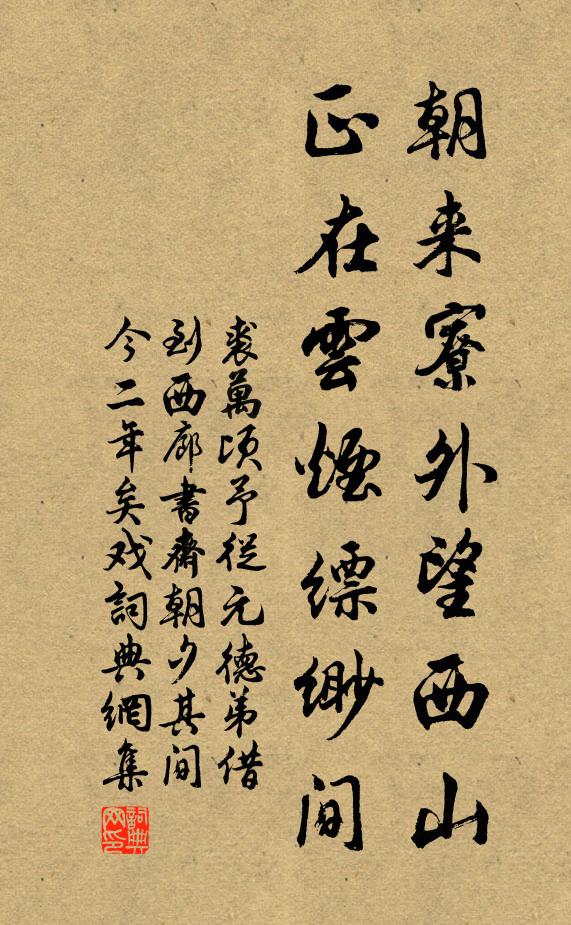 朝来寮外望西山
正在雲煙縹緲間
裘萬頃予從元德弟借
到西廊書齋朝夕其间
今二年矣戏詞典網集
詞典网印